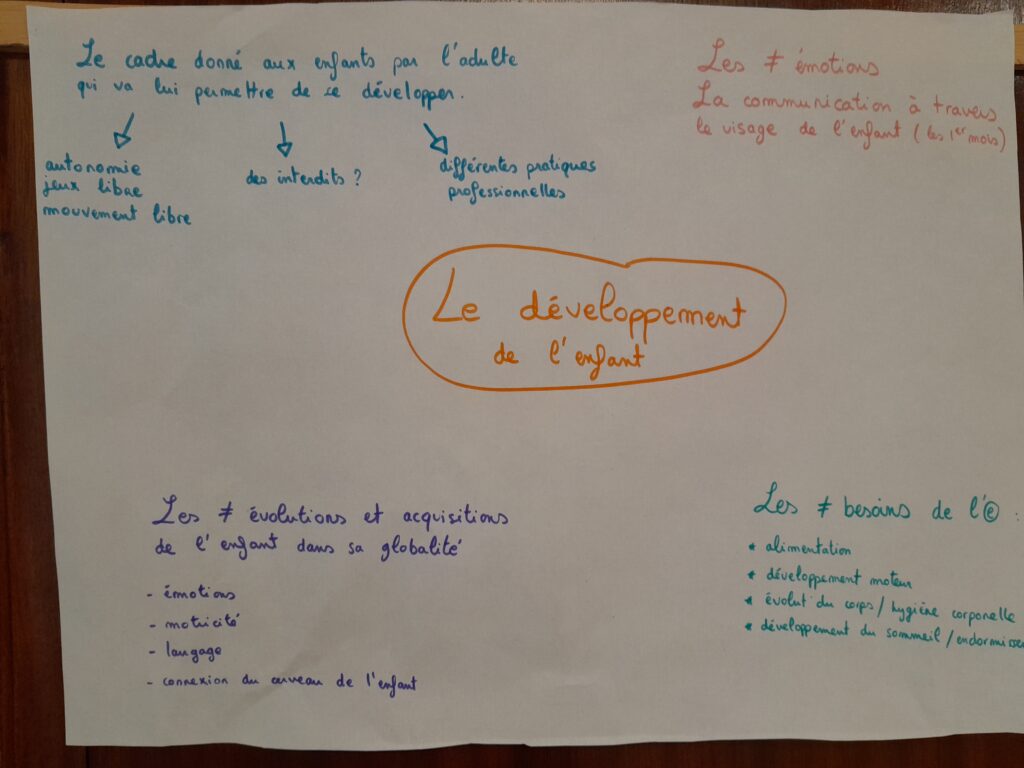 Le cadre donné aux enfants par l'adulte
qui va lui permettre de se développer.
autonomie
jeux libre
mouvement libre
des interdits ?
différentes pratiques
professionnelles
Les ≠ émotions
La communication à travers
le visage de l'enfant (les 1er mois)
Le développement
de l'enfant
Les ≠ évolutions et acquisitions
de l'enfant dans sa globalité
- émotions
- motricité
- langage
- connexion du cerveau de l'enfant
Les ≠ besoins de l'ⓔ :
* alimentation
* développement moteur
* évolut° du corps / hygiène corporelle
* développement du sommeil /